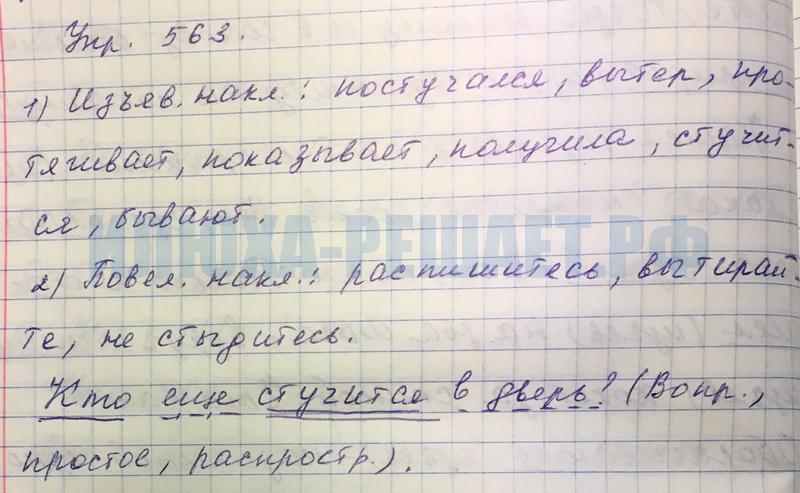 Упр. 563.
1) Изъяв. накл.: постучался, вытер, про-
тягивает, показывает, получила, стучит-
ся, бывают.
ИЛНІХА-РЕШАЕТ.РФ
2) Повел. накл.: распишитесь, вытирай-
те, не стыдитесь.
Кто еще стучится в дверь? (Вопр.,
простое, распростр.).